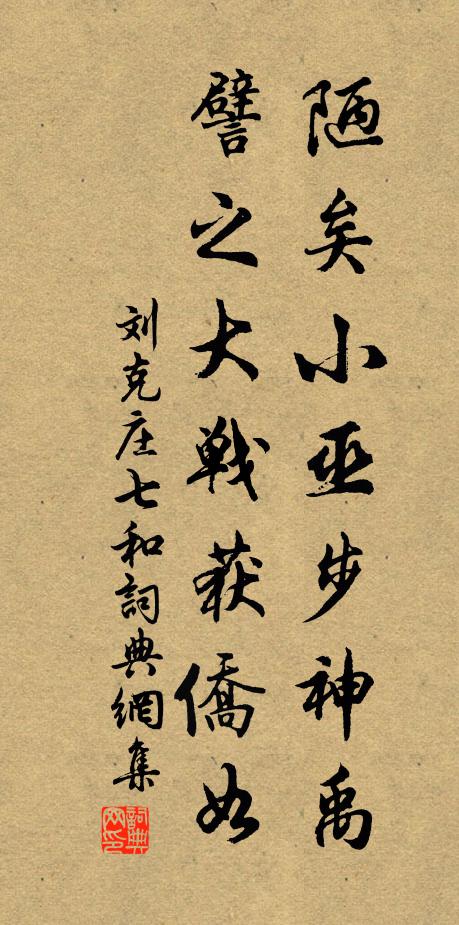 陋矣小巫步神禹
譬之大戰获僑如
刘克庄七和詞典網集
詞典網印